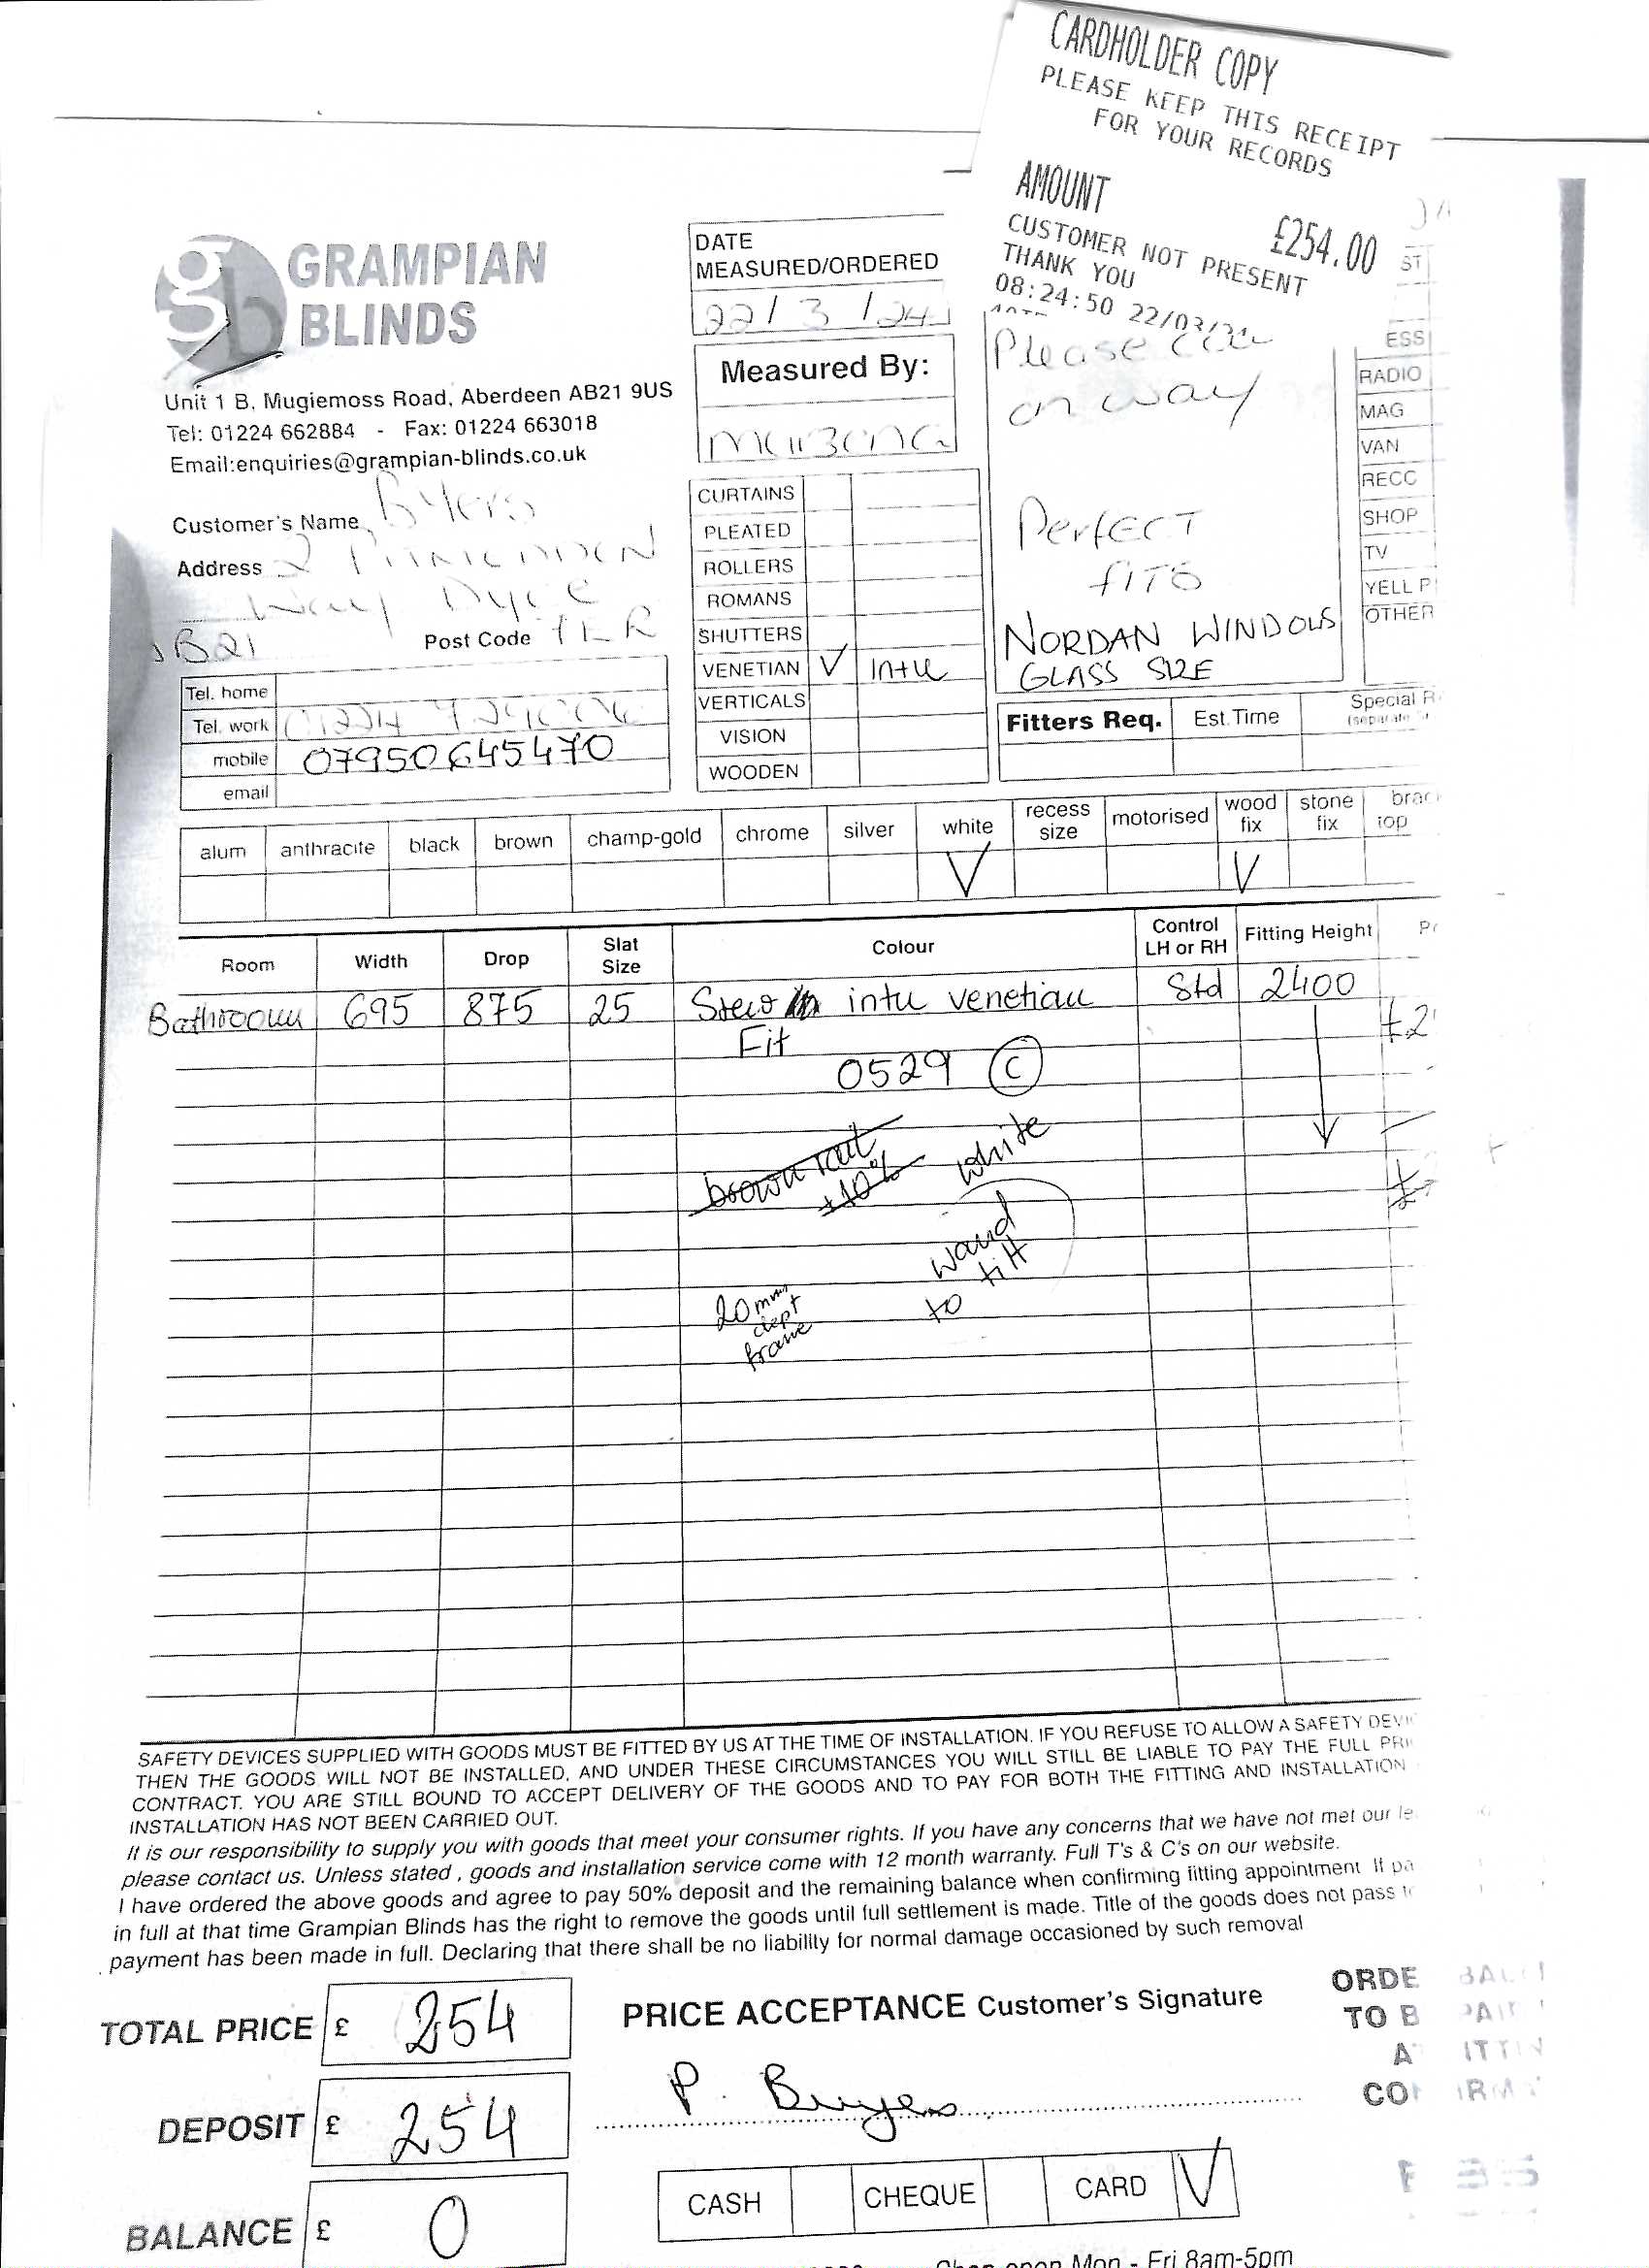 CARDHOLDER COPY
PLEASE KEEP THIS RECEIPT
FOR YOUR RECORDS
AMOUNT
£254.00
CUSTOMER NOT PRESENT
THANK YOU
08:24:50 22/03/
GRAMPIAN
BLINDS
Unit 1 B, Mugiemoss Road, Aberdeen AB21 9US
Tel: 01224 662884 - Fax: 01224 663018
Email:enquiries@grampian-blinds.co.uk
Customer's Name Byers
Address 2
Way Dyce
Post Code
Tel. home
Tel. work
mobile 07950645470
email
DATE
MEASURED/ORDERED
22/3/24
Measured By:
CURTAINS
PLEATED
ROLLERS
ROMANS
SHUTTERS
VENETIAN V intu
VERTICALS
VISION
WOODEN
Please call
on way
Perfect
fits
NORDAN WINDOWS
GLASS SIZE
ESS
RADIO
MAG
VAN
RECC
SHOP
TV
YELL P
OTHER
Fitters Req. Est.Time Special R
alum anthracite black brown champ-gold chrome silver white recess size motorised wood fix stone fix
V V
Room Width Drop Slat Size Colour Control LH or RH Fitting Height
Bathroom 695 875 25 intu venetian Std 2400
Fit
0529 C
brown rail
+10%
white
wand
to tilt
20mm
dept
frame
SAFETY DEVICES SUPPLIED WITH GOODS MUST BE FITTED BY US AT THE TIME OF INSTALLATION. IF YOU REFUSE TO ALLOW A SAFETY DEVI
THEN THE GOODS WILL NOT BE INSTALLED, AND UNDER THESE CIRCUMSTANCES YOU WILL STILL BE LIABLE TO PAY THE FULL PRI
CONTRACT. YOU ARE STILL BOUND TO ACCEPT DELIVERY OF THE GOODS AND TO PAY FOR BOTH THE FITTING AND INSTALLATION
INSTALLATION HAS NOT BEEN CARRIED OUT.
It is our responsibility to supply you with goods that meet your consumer rights. If you have any concerns that we have not met our le
please contact us. Unless stated , goods and installation service come with 12 month warranty. Full T's & C's on our website.
I have ordered the above goods and agree to pay 50% deposit and the remaining balance when confirming fitting appointment If pa
in full at that time Grampian Blinds has the right to remove the goods until full settlement is made. Title of the goods does not pass
payment has been made in full. Declaring that there shall be no liability for normal damage occasioned by such removal
TOTAL PRICE £ 254
PRICE ACCEPTANCE Customer's Signature
DEPOSIT £ 254
BALANCE £ 0
CASH CHEQUE CARD V
ORDE
TO B
A
CO
open Mon - Fri 8am-5pm